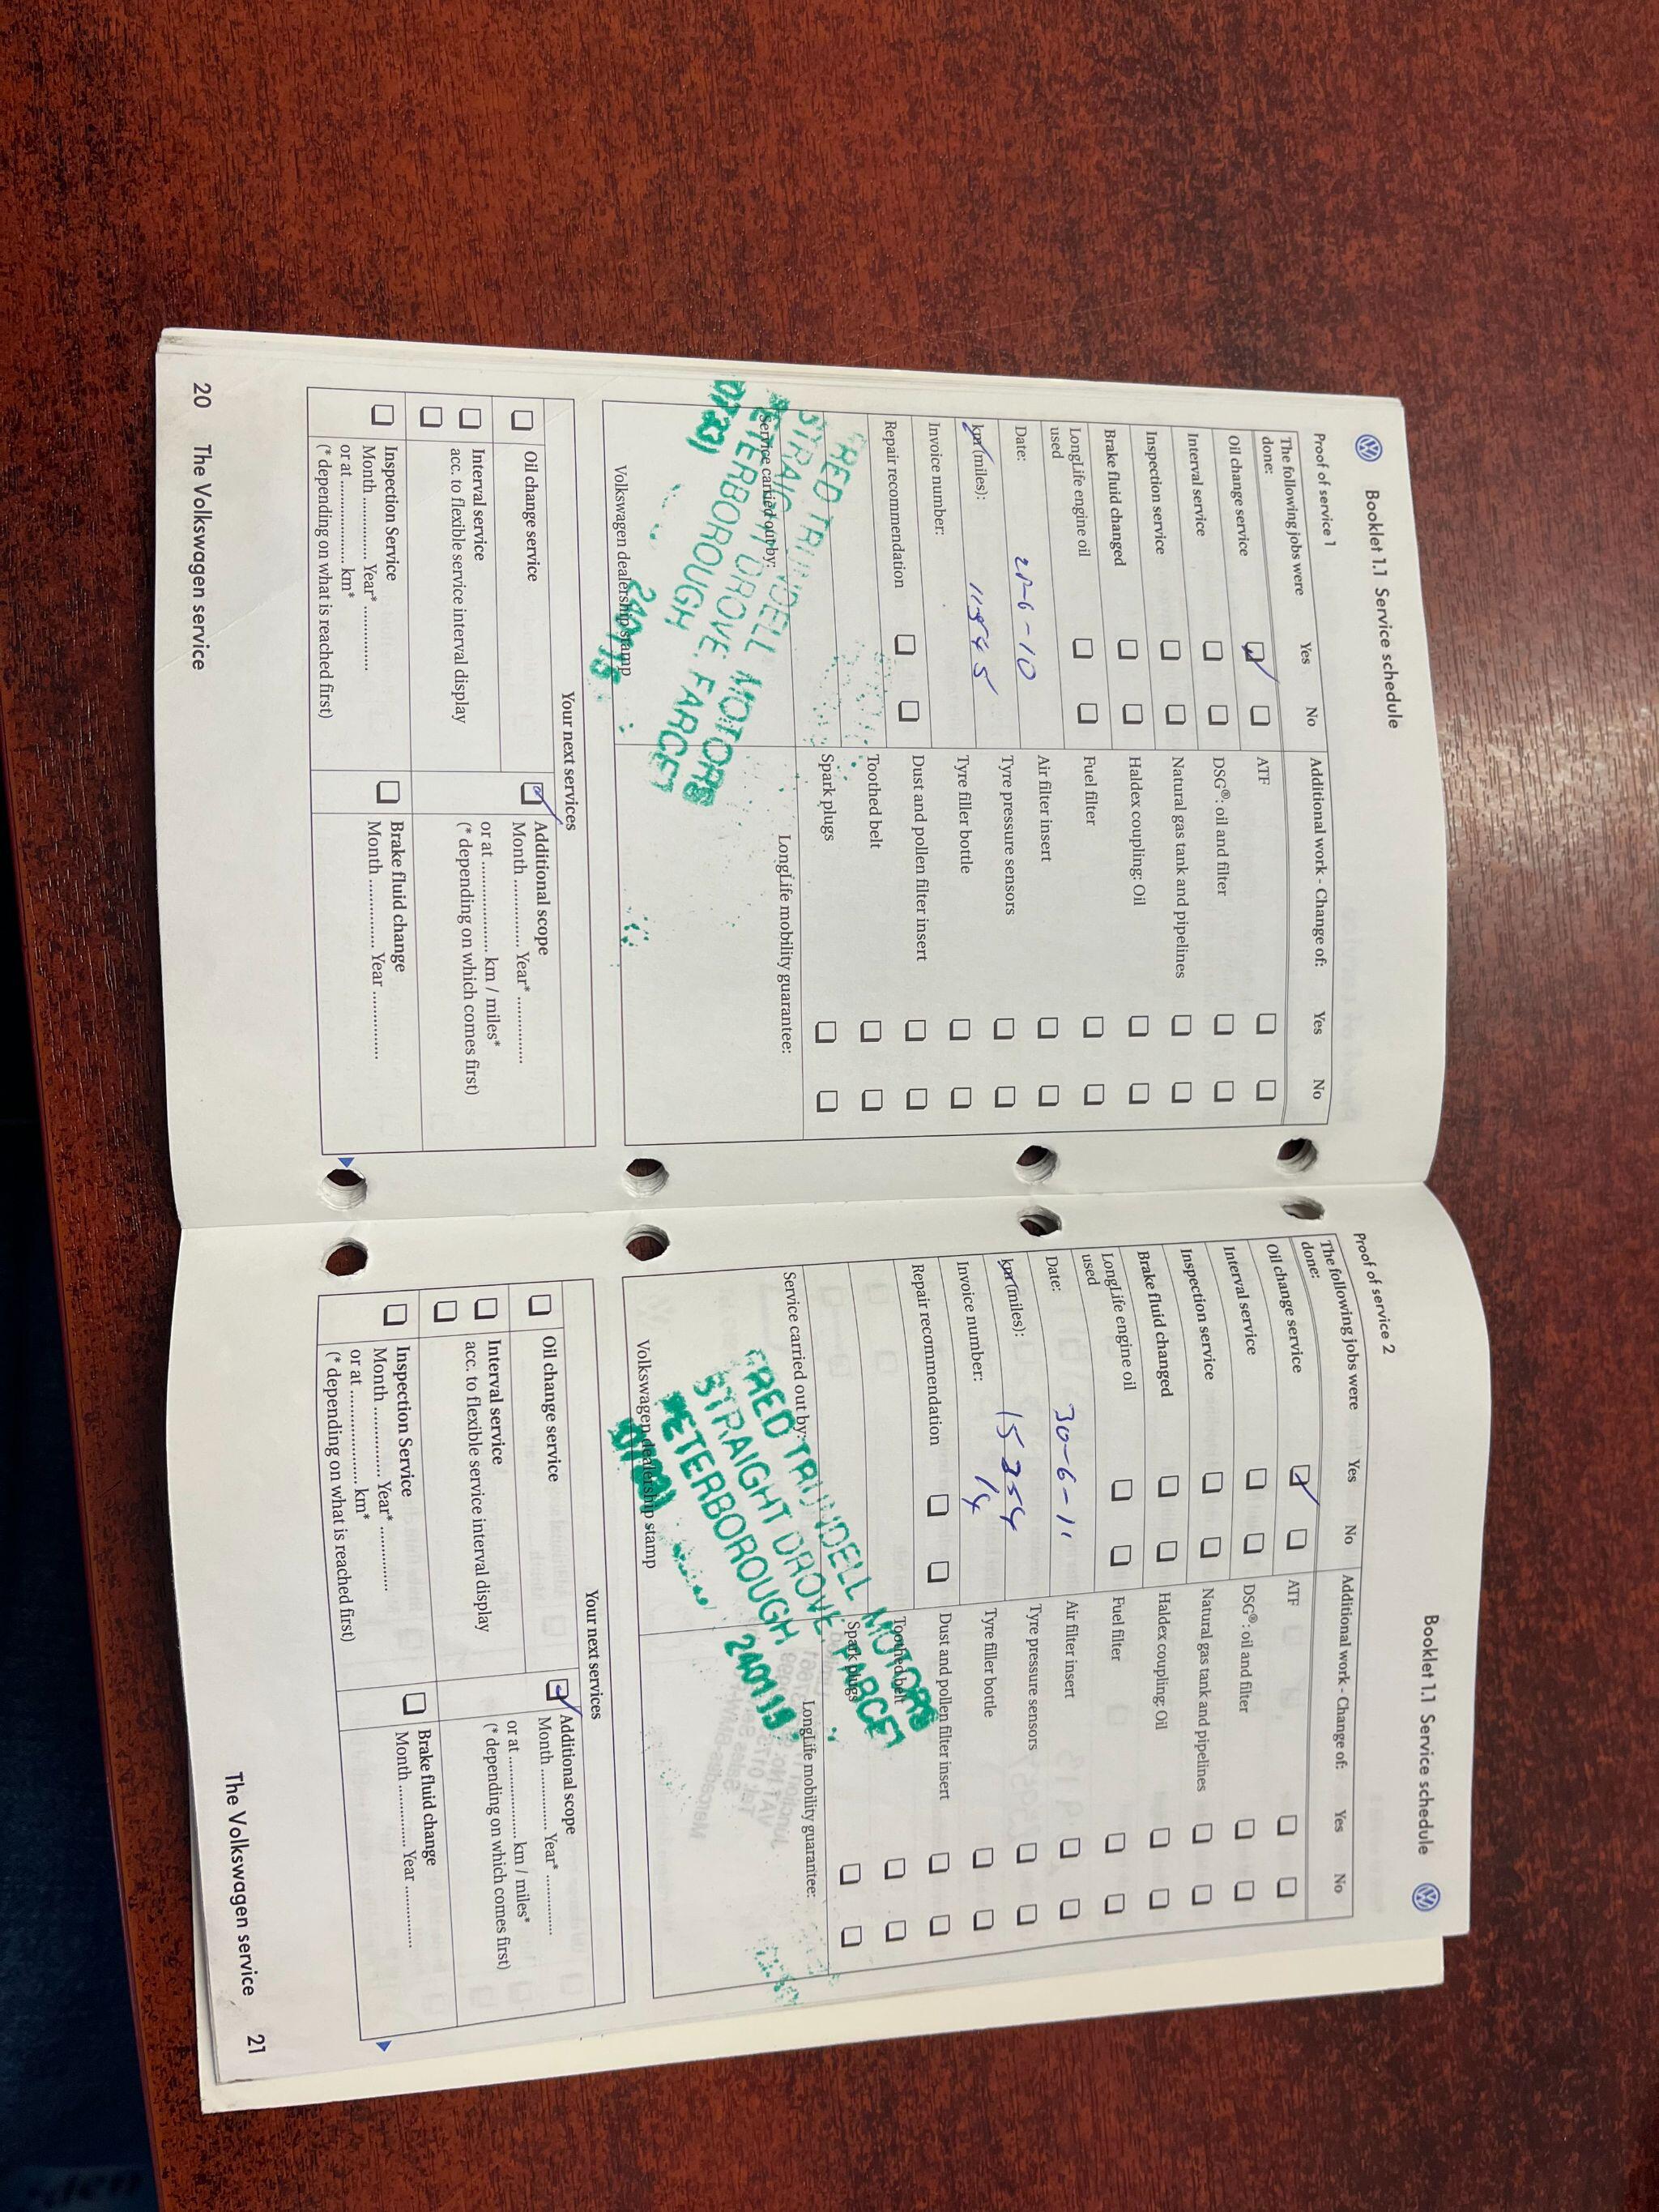 Booklet 1.1 Service schedule
Proof of service 1
The following jobs were done: Yes No
Additional work - Change of: Yes No
Oil change service
ATF
Interval service
DSG®: oil and filter
Inspection service
Natural gas tank and pipelines
Brake fluid changed
Haldex coupling: Oil
LongLife engine oil
used
Fuel filter
Date: 28-6-10
Air filter insert
km/(miles):
Tyre pressure sensors
Invoice number:
Tyre filler bottle
Repair recommendation
Dust and pollen filter insert
Toothed belt
Spark plugs
Service carried out by:
LongLife mobility guarantee:
FRED TRUNDELL MOTORS
STRAIGHT DROVE, FARCET
PETERBOROUGH
(01733) 240115
Volkswagen dealership stamp
Your next services
Oil change service
Additional scope
Month ............ Year* ............
or at ................ km / miles*
(* depending on which comes first)
Interval service
acc. to flexible service interval display
Inspection Service
Month ............ Year* ............
or at ................ km*
(* depending on what is reached first)
Brake fluid change
Month ............ Year ............
20 The Volkswagen service
Booklet 1.1 Service schedule
Proof of service 2
The following jobs were done: Yes No
Additional work - Change of: Yes No
Oil change service
ATF
Interval service
DSG®: oil and filter
Inspection service
Natural gas tank and pipelines
Brake fluid changed
Haldex coupling: Oil
LongLife engine oil
used
Fuel filter
Date: 30-6-11
Air filter insert
km/(miles): 15354
Tyre pressure sensors
Invoice number: 14
Tyre filler bottle
Repair recommendation
Dust and pollen filter insert
Toothed belt
Spark plugs
Service carried out by:
LongLife mobility guarantee:
FRED TRUNDELL MOTORS
STRAIGHT DROVE, FARCET
PETERBOROUGH
240115
Volkswagen dealership stamp
Your next services
Oil change service
Additional scope
Month ............ Year* ............
or at ................ km / miles*
(* depending on which comes first)
Interval service
acc. to flexible service interval display
Inspection Service
Month ............ Year* ............
or at ................ km*
(* depending on what is reached first)
Brake fluid change
Month ............ Year ............
The Volkswagen service 21